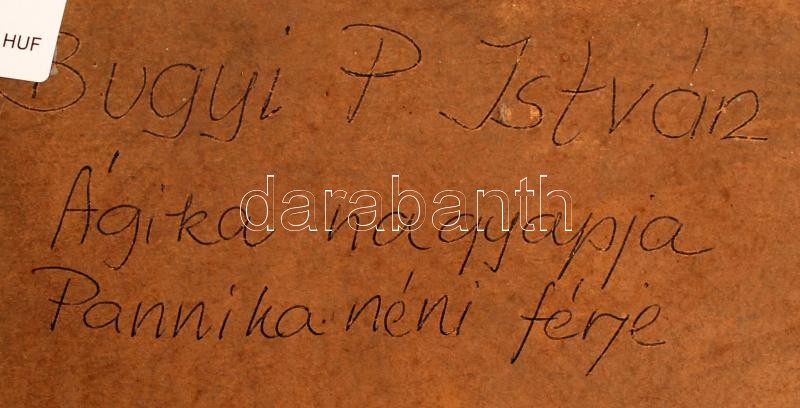 HUF
Bugyi P István
Ágika nagyapja
darabanth
Pannika néni férje